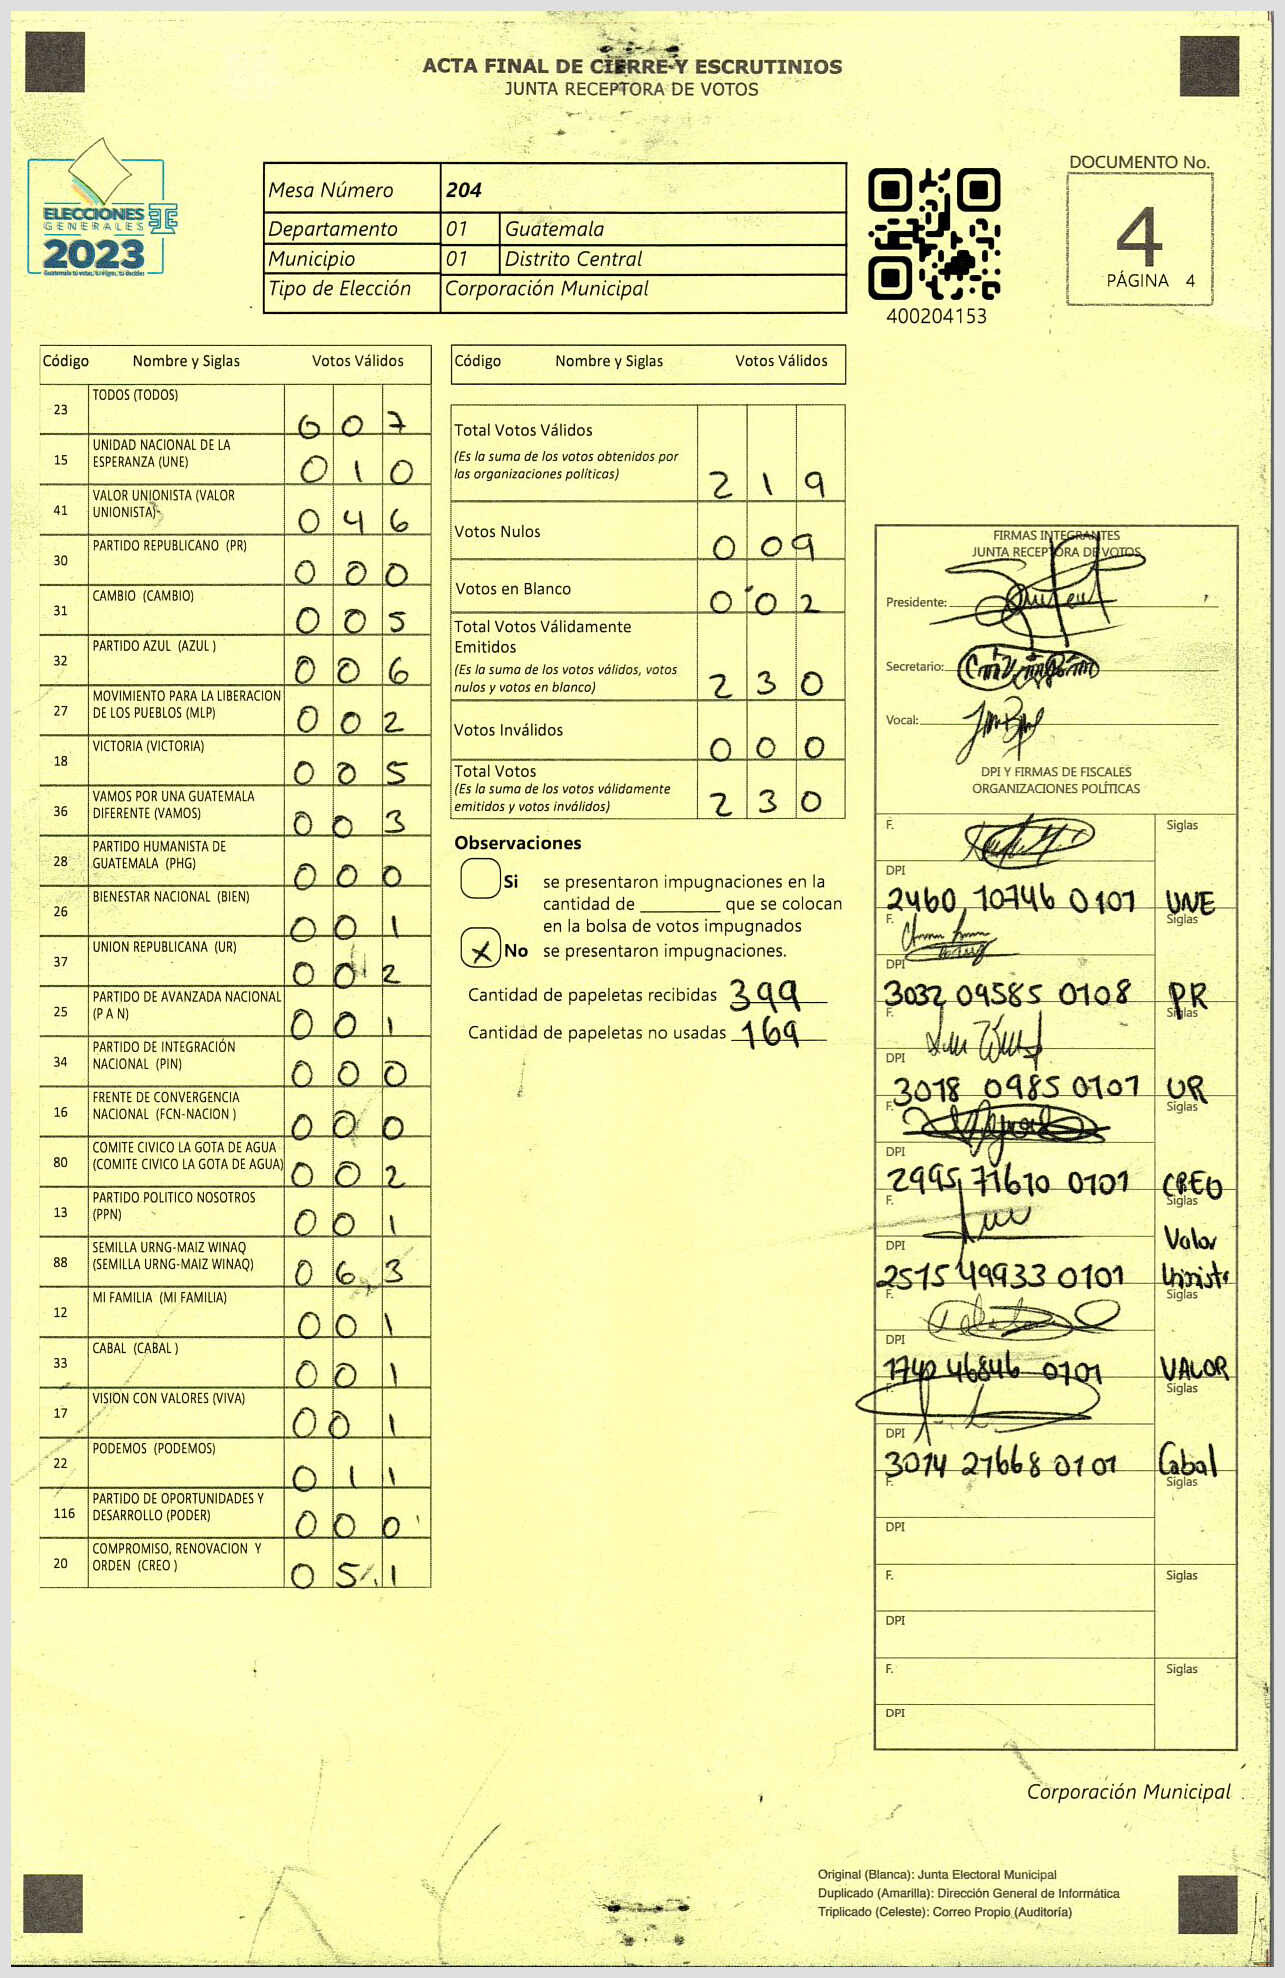 ACTA FINAL DE CIERRE Y ESCRUTINIOS
JUNTA RECEPTORA DE VOTOS
ELECCIONES
GENERALES
2023
Guatemala tú votas, tú eliges, tú decides
Mesa Número 204
Departamento 01 Guatemala
Municipio 01 Distrito Central
Tipo de Elección Corporación Municipal
400204153
DOCUMENTO No.
4
PÁGINA 4
Código Nombre y Siglas Votos Válidos
23 TODOS (TODOS) 0 0 7
15 UNIDAD NACIONAL DE LA ESPERANZA (UNE) 0 1 0
41 VALOR UNIONISTA (VALOR UNIONISTA) 0 4 6
30 PARTIDO REPUBLICANO (PR) 0 0 0
31 CAMBIO (CAMBIO) 0 0 5
32 PARTIDO AZUL (AZUL ) 0 0 6
27 MOVIMIENTO PARA LA LIBERACION DE LOS PUEBLOS (MLP) 0 0 2
18 VICTORIA (VICTORIA) 0 0 5
36 VAMOS POR UNA GUATEMALA DIFERENTE (VAMOS) 0 0 3
28 PARTIDO HUMANISTA DE GUATEMALA (PHG) 0 0 0
26 BIENESTAR NACIONAL (BIEN) 0 0 1
37 UNION REPUBLICANA (UR) 0 0 2
25 PARTIDO DE AVANZADA NACIONAL (P A N) 0 0 1
34 PARTIDO DE INTEGRACIÓN NACIONAL (PIN) 0 0 0
16 FRENTE DE CONVERGENCIA NACIONAL (FCN-NACION ) 0 0 0
80 COMITE CIVICO LA GOTA DE AGUA (COMITE CIVICO LA GOTA DE AGUA) 0 0 2
13 PARTIDO POLITICO NOSOTROS (PPN) 0 0 1
88 SEMILLA URNG-MAIZ WINAQ (SEMILLA URNG-MAIZ WINAQ) 0 6 3
12 MI FAMILIA (MI FAMILIA) 0 0 1
33 CABAL (CABAL ) 0 0 1
17 VISION CON VALORES (VIVA) 0 0 1
22 PODEMOS (PODEMOS) 0 1 1
116 PARTIDO DE OPORTUNIDADES Y DESARROLLO (PODER) 0 0 0
20 COMPROMISO, RENOVACION Y ORDEN (CREO ) 0 5 1
Código Nombre y Siglas Votos Válidos
Total Votos Válidos
(Es la suma de los votos obtenidos por
las organizaciones políticas) 2 1 9
Votos Nulos 0 0 9
Votos en Blanco 0 0 2
Total Votos Válidamente
Emitidos
(Es la suma de los votos válidos, votos
nulos y votos en blanco) 2 3 0
Votos Inválidos 0 0 0
Total Votos
(Es la suma de los votos válidamente
emitidos y votos inválidos) 2 3 0
Observaciones
Si se presentaron impugnaciones en la
cantidad de ________ que se colocan
en la bolsa de votos impugnados
X No se presentaron impugnaciones.
Cantidad de papeletas recibidas 399
Cantidad de papeletas no usadas 169
FIRMAS INTEGRANTES
JUNTA RECEPTORA DE VOTOS
Presidente:
Secretario:
Vocal:
DPI Y FIRMAS DE FISCALES
ORGANIZACIONES POLÍTICAS
F. Siglas
DPI
2460 10746 0101 UNE
F. Siglas
DPI
3032 09585 0108 PR
F. Siglas
DPI
3018 0985 0101 UR
F. Siglas
DPI
2995 71610 0101 CREO
F. Siglas
DPI Valor
2515 49933 0101 Unionista
F. Siglas
DPI
1740 46846 0101 VALOR
F. Siglas
DPI
3014 21668 0101 Cabal
F. Siglas
DPI
F. Siglas
DPI
F. Siglas
DPI
Corporación Municipal
Original (Blanca): Junta Electoral Municipal
Duplicado (Amarilla): Dirección General de Informática
Triplicado (Celeste): Correo Propio (Auditoría)